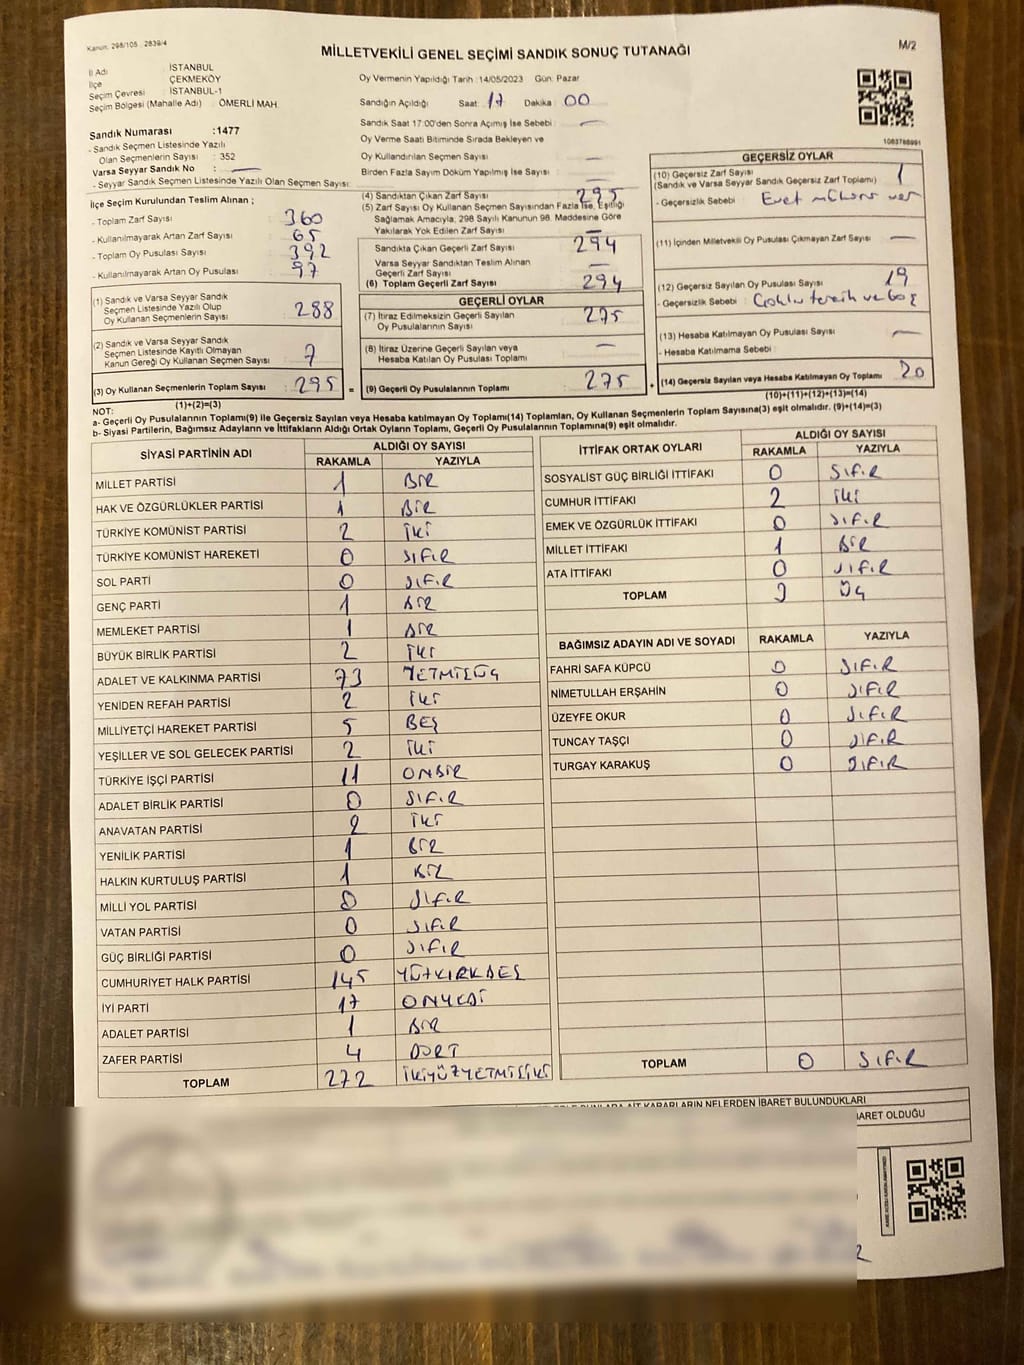 Kanun. 298/105 2839/4
M/2
MİLLETVEKİLİ GENEL SEÇİMİ SANDIK SONUÇ TUTANAĞI
İl Adı İSTANBUL
İlçe ÇEKMEKÖY
Seçim Çevresi İSTANBUL-1
Seçim Bölgesi (Mahalle Adı) ÖMERLİ MAH.
Sandık Numarası :1477
- Sandık Seçmen Listesinde Yazılı
Olan Seçmenlerin Sayısı : 352
Varsa Seyyar Sandık No : —
- Seyyar Sandık Seçmen Listesinde Yazılı Olan Seçmen Sayısı:
Oy Vermenin Yapıldığı Tarih :14/05/2023 Gün: Pazar
Sandığın Açıldığı Saat: 17 Dakika: 00
Sandık Saat 17:00'den Sonra Açımış İse Sebebi : —
Oy Verme Saati Bitiminde Sırada Bekleyen ve
Oy Kullandırılan Seçmen Sayısı : —
Birden Fazla Sayım Döküm Yapılmış İse Sayısı : —
1083786991
İlçe Seçim Kurulundan Teslim Alınan ;
- Toplam Zarf Sayısı : 360
- Kullanılmayarak Artan Zarf Sayısı : 65
- Toplam Oy Pusulası : 392
- Kullanılmayarak Artan Oy Pusulası : 97
(1) Sandık ve Varsa Seyyar Sandık
Seçmen Listesinde Yazılı Olup
Oy Kullanan Seçmenlerin Sayısı : 288
(2) Sandık ve Varsa Seyyar Sandık
Seçmen Listesinde Kayıtlı Olmayan
Kanun Gereği Oy Kullanan Seçmen Sayısı : 7
(3) Oy Kullanan Seçmenlerin Toplam Sayısı : 295 =
(1)+(2)=(3)
(4) Sandıktan Çıkan Zarf Sayısı : 295
(5) Zarf Sayısı Oy Kullanan Seçmen Sayısından Fazla İse, Eşitliği
Sağlamak Amacıyla, 298 Sayılı Kanunun 98. Maddesine Göre
Yakılarak Yok Edilen Zarf Sayısı : —
Sandıkta Çıkan Geçerli Zarf Sayısı : 294
Varsa Seyyar Sandıktan Teslim Alınan
Geçerli Zarf Sayısı : —
(6) Toplam Geçerli Zarf Sayısı : 294
GEÇERLİ OYLAR
(7) İtiraz Edilmeksizin Geçerli Sayılan
Oy Pusulalarının Sayısı : 275
(8) İtiraz Üzerine Geçerli Sayılan veya
Hesaba Katılan Oy Pusulası Toplamı : —
(9) Geçerli Oy Pusulalarının Toplamı : 275 +
GEÇERSİZ OYLAR
(10) Geçersiz Zarf Sayısı : 1
(Sandık ve Varsa Seyyar Sandık Geçersiz Zarf Toplamı)
- Geçersizlik Sebebi : Evet mührü var
(11) İçinden Milletvekili Oy Pusulası Çıkmayan Zarf Sayısı : —
(12) Geçersiz Sayılan Oy Pusulası Sayısı : 19
- Geçersizlik Sebebi : Çoklu tercih ve boş
(13) Hesaba Katılmayan Oy Pusulası Sayısı : —
- Hesaba Katılmama Sebebi :
(14) Geçersiz Sayılan veya Hesaba Katılmayan Oy Toplamı : 20
(10)+(11)+(12)+(13)=(14)
NOT:
a- Geçerli Oy Pusulalarının Toplamı(9) ile Geçersiz Sayılan veya Hesaba katılmayan Oy Toplamı(14) Toplamları, Oy Kullanan Seçmenlerin Toplam Sayısına(3) eşit olmalıdır. (9)+(14)=(3)
b- Siyasi Partilerin, Bağımsız Adayların ve İttifakların Aldığı Ortak Oyların Toplamı, Geçerli Oy Pusulalarının Toplamına(9) eşit olmalıdır.
SİYASİ PARTİNİN ADI ALDIĞI OY SAYISI
RAKAMLA YAZIYLA
MİLLET PARTİSİ 1 BİR
HAK VE ÖZGÜRLÜKLER PARTİSİ 1 BİR
TÜRKİYE KOMÜNİST PARTİSİ 2 İKİ
TÜRKİYE KOMÜNİST HAREKETİ 0 SIFIR
SOL PARTİ 0 SIFIR
GENÇ PARTİ 1 BİR
MEMLEKET PARTİSİ 1 BİR
BÜYÜK BİRLİK PARTİSİ 2 İKİ
ADALET VE KALKINMA PARTİSİ 73 YETMİŞÜÇ
YENİDEN REFAH PARTİSİ 2 İKİ
MİLLİYETÇİ HAREKET PARTİSİ 5 BEŞ
YEŞİLLER VE SOL GELECEK PARTİSİ 2 İKİ
TÜRKİYE İŞÇİ PARTİSİ 11 ONBİR
ADALET BİRLİK PARTİSİ 0 SIFIR
ANAVATAN PARTİSİ 2 İKİ
YENİLİK PARTİSİ 1 BİR
HALKIN KURTULUŞ PARTİSİ 1 BİR
MİLLİ YOL PARTİSİ 0 SIFIR
VATAN PARTİSİ 0 SIFIR
GÜÇ BİRLİĞİ PARTİSİ 0 SIFIR
CUMHURİYET HALK PARTİSİ 145 YÜZKIRKBEŞ
İYİ PARTİ 17 ONYEDİ
ADALET PARTİSİ 1 BİR
ZAFER PARTİSİ 4 DÖRT
TOPLAM 272 İKİYÜZYETMİŞİKİ
İTTİFAK ORTAK OYLARI ALDIĞI OY SAYISI
RAKAMLA YAZIYLA
SOSYALİST GÜÇ BİRLİĞİ İTTİFAKI 0 SIFIR
CUMHUR İTTİFAKI 2 İKİ
EMEK VE ÖZGÜRLÜK İTTİFAKI 0 SIFIR
MİLLET İTTİFAKI 1 BİR
ATA İTTİFAKI 0 SIFIR
TOPLAM 3 ÜÇ
BAĞIMSIZ ADAYIN ADI VE SOYADI RAKAMLA YAZIYLA
FAHRİ SAFA KÜPCÜ 0 SIFIR
NİMETULLAH ERŞAHİN 0 SIFIR
ÜZEYFE OKUR 0 SIFIR
TUNCAY TAŞÇI 0 SIFIR
TURGAY KARAKUŞ 0 SIFIR
TOPLAM 0 SIFIR
AİT KARARLARIN NELERDEN İBARET BULUNDUKLARI
İBARET OLDUĞU